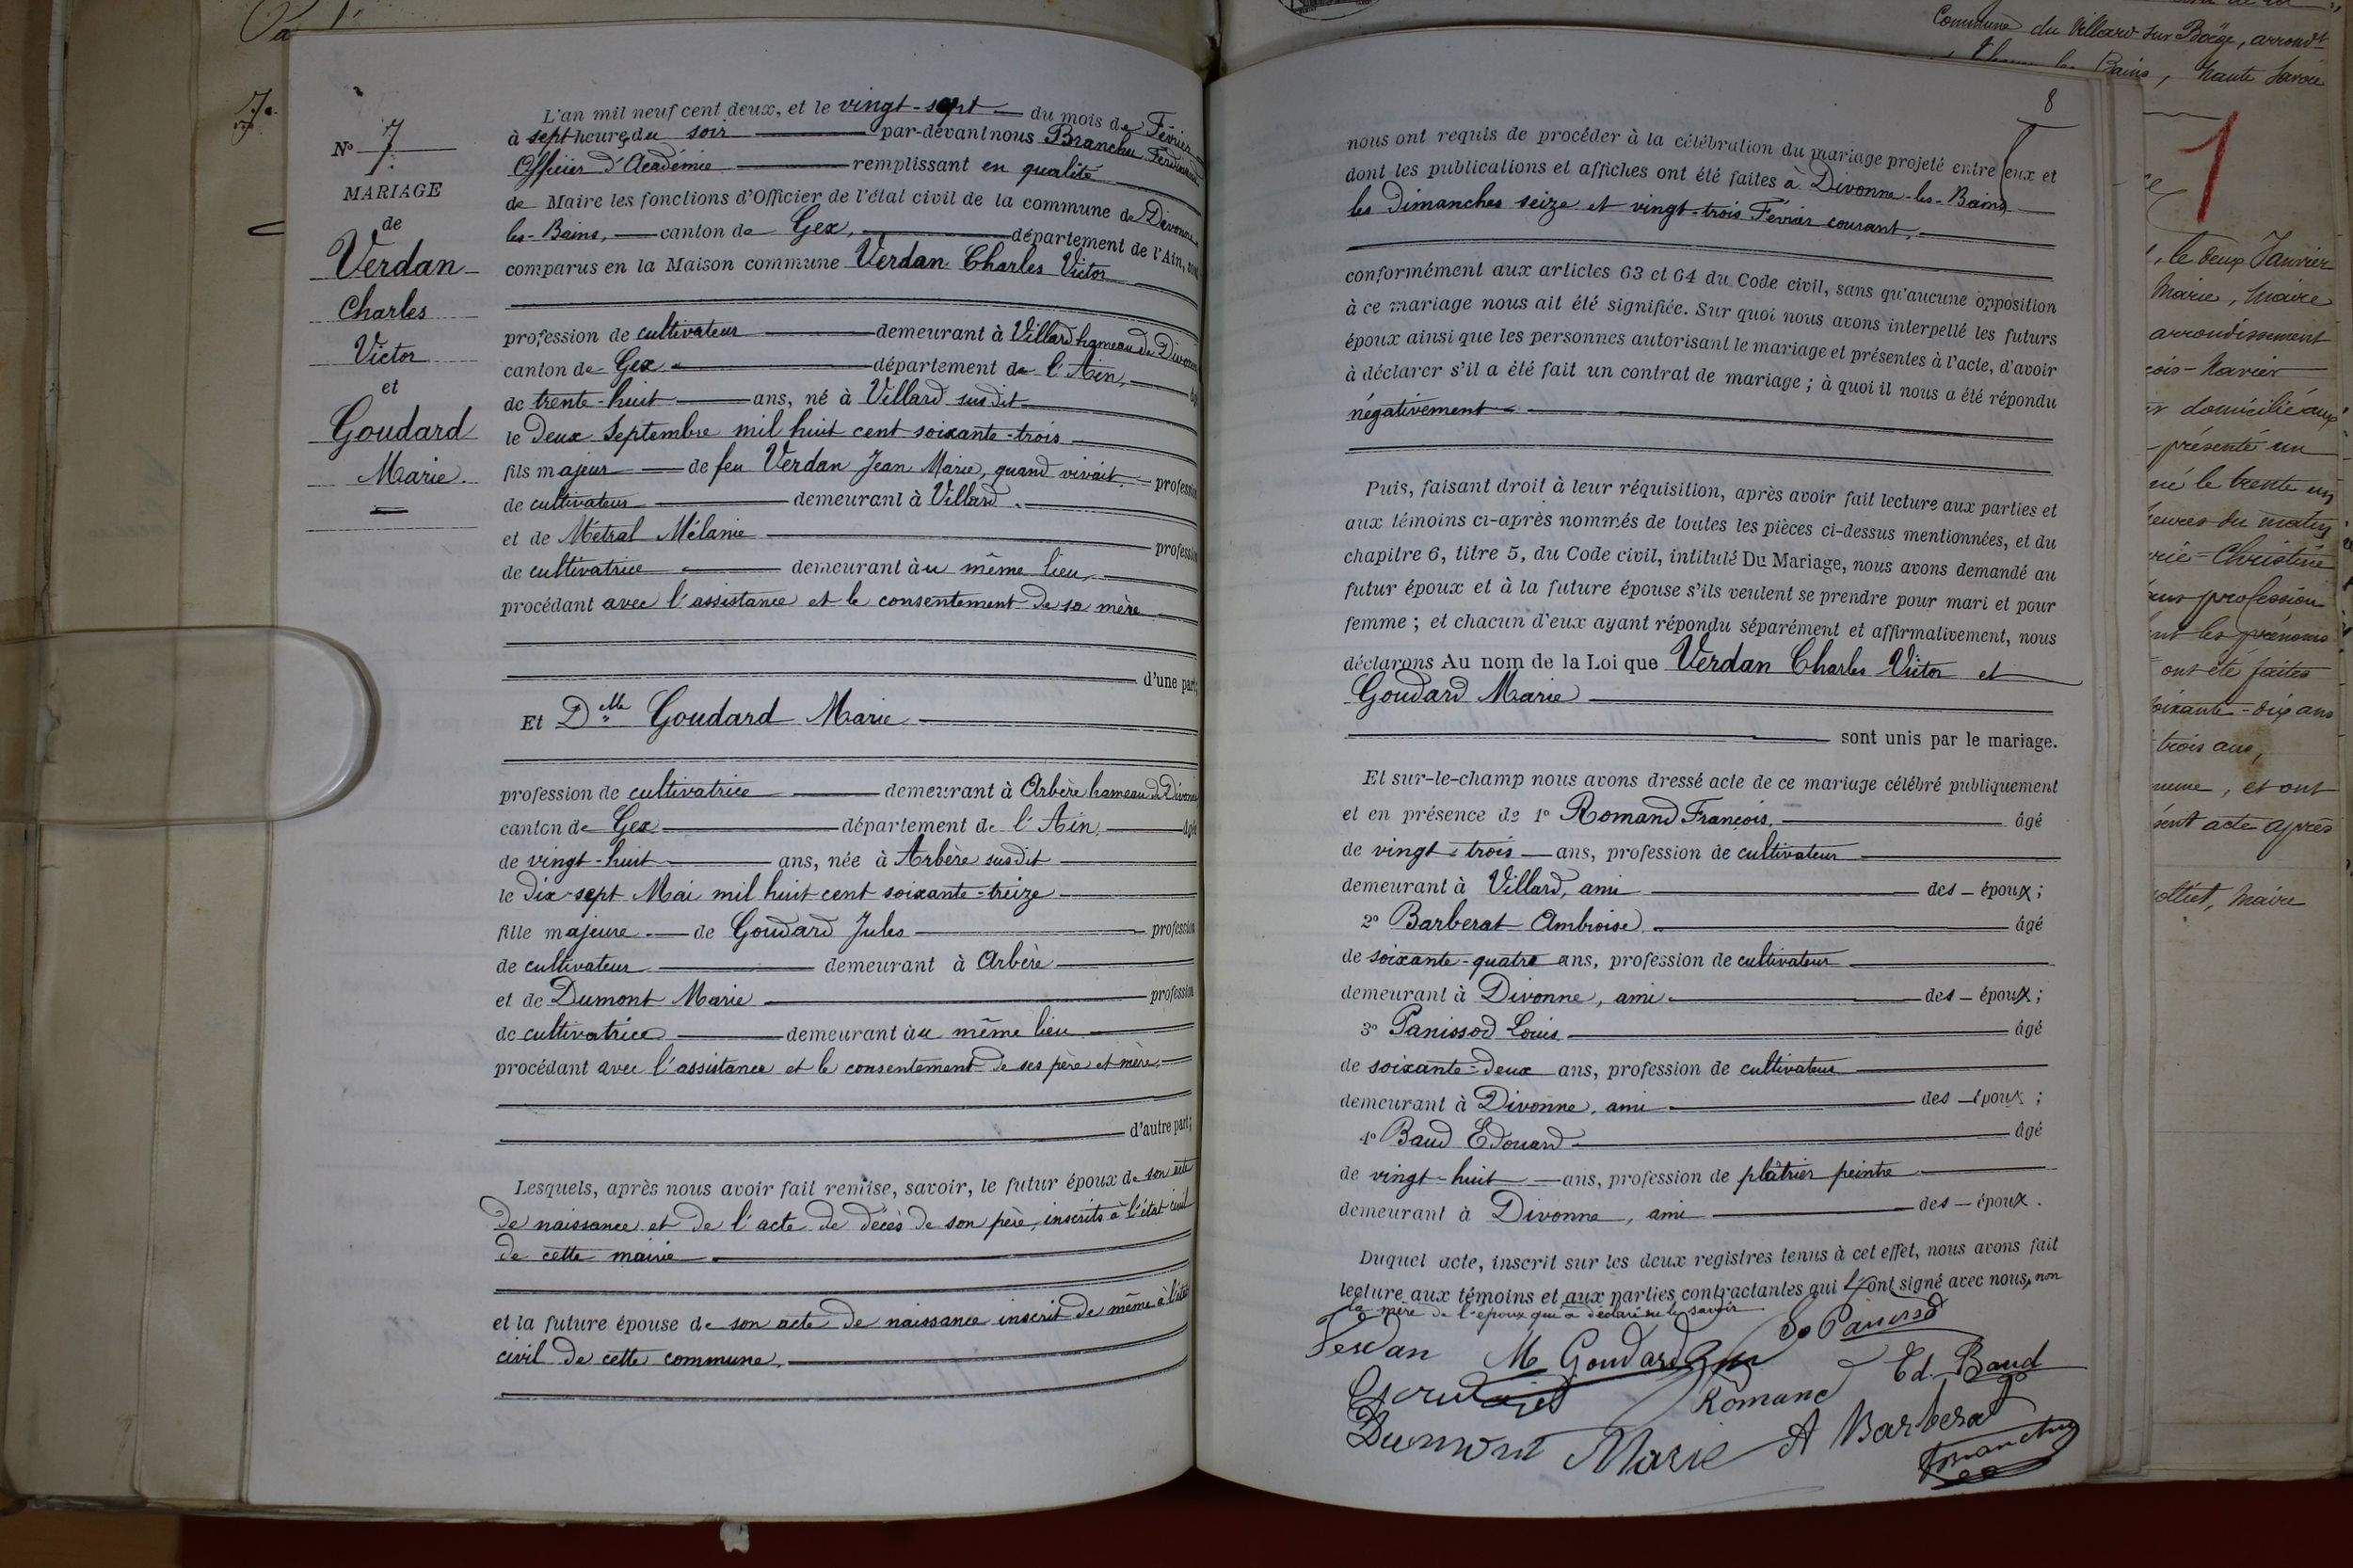 N° 7
MARIAGE
de
Verdan
Charles
Victor
et
Goudard
Marie
L'an mil neuf cent deux, et le vingt-sept du mois de Février
à sept heures du soir par-devant nous Branchu Ferdinand
Officier d'Académie remplissant en qualité
de Maire les fonctions d'Officier de l'état civil de la commune de Divonne
les-Bains, canton de Gex, département de l'Ain, sont
comparus en la Maison commune Verdan Charles Victor
profession de cultivateur demeurant à Villard hameau de Divonne
canton de Gex département de l'Ain, âgé
de trente-huit ans, né à Villard susdit
le Deux Septembre mil huit cent soixante-trois
fils majeur de feu Verdan Jean Marie, quand vivait profession
de cultivateur demeurant à Villard.
et de Métral Mélanie profession
de cultivatrice demeurant au même lieu,
procédant avec l'assistance et le consentement de sa mère
d'une part;
Et Delle Goudard Marie
profession de cultivatrice demeurant à Arbère hameau de Divonne
canton de Gex département de l'Ain, âgée
de vingt-huit ans, née à Arbère susdit
le dix-sept Mai mil huit cent soixante-treize
fille majeure de Goudard Jules profession
de cultivateur demeurant à Arbère
et de Dumont Marie profession
de cultivatrice demeurant au même lieu
procédant avec l'assistance et le consentement de ses père et mère,
d'autre part;
Lesquels, après nous avoir fait remise, savoir, le futur époux de son acte
de naissance et de l'acte de décès de son père, inscrits à l'état civil
de cette mairie
et la future épouse de son acte de naissance inscrit de même à l'état
civil de cette commune.
8
nous ont requis de procéder à la célébration du mariage projeté entre eux et
dont les publications et affiches ont été faites à Divonne-les-Bains
les dimanches seize et vingt-trois Février courant,
conformément aux articles 63 et 64 du Code civil, sans qu'aucune opposition
à ce mariage nous ait été signifiée. Sur quoi nous avons interpellé les futurs
époux ainsi que les personnes autorisant le mariage et présentes à l'acte, d'avoir
à déclarer s'il a été fait un contrat de mariage ; à quoi il nous a été répondu
négativement
Puis, faisant droit à leur réquisition, après avoir fait lecture aux parties et
aux témoins ci-après nommés de toutes les pièces ci-dessus mentionnées, et du
chapitre 6, titre 5, du Code civil, intitulé Du Mariage, nous avons demandé au
futur époux et à la future épouse s'ils veulent se prendre pour mari et pour
femme ; et chacun d'eux ayant répondu séparément et affirmativement, nous
déclarons Au nom de la Loi que Verdan Charles Victor et
Goudard Marie
sont unis par le mariage.
Et sur-le-champ nous avons dressé acte de ce mariage célébré publiquement
et en présence de 1° Romand François, âgé
de vingt-trois ans, profession de cultivateur
demeurant à Villard, ami des époux;
2° Barberat Ambroise, âgé
de soixante-quatre ans, profession de cultivateur
demeurant à Divonne, ami des époux;
3° Panissod Louis âgé
de soixante-deux ans, profession de cultivateur
demeurant à Divonne, ami des époux;
4° Baud Edouard âgé
de vingt-huit ans, profession de plâtrier peintre
demeurant à Divonne, ami des époux.
Duquel acte, inscrit sur les deux registres tenus à cet effet, nous avons fait
lecture aux témoins et aux parties contractantes qui l'ont signé avec nous, non
la mère de l'époux qui a déclaré ne le savoir
Verdan M Goudard Ls Panissod
Romand Ed. Baud
Dumont Marie A Barberat
Branchu
Commune du Villard-sur-Boëge, arrondt
Bains, haute Savoie
1
, le deux Janvier
Marie, Maire
arrondissement
domicilié aux
présenté un
né le trente un
heures du matin
Christine
profession
les prénoms
ont été faites
soixante-dix ans
trois ans,
, et ont
acte après
, Maire